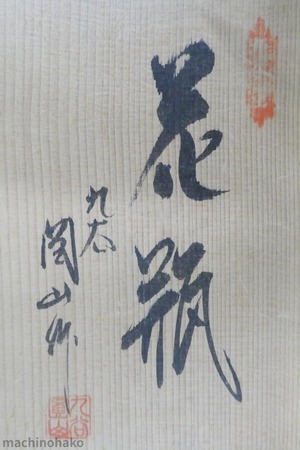 花瓶
九谷
岡山作
九谷
machinohako